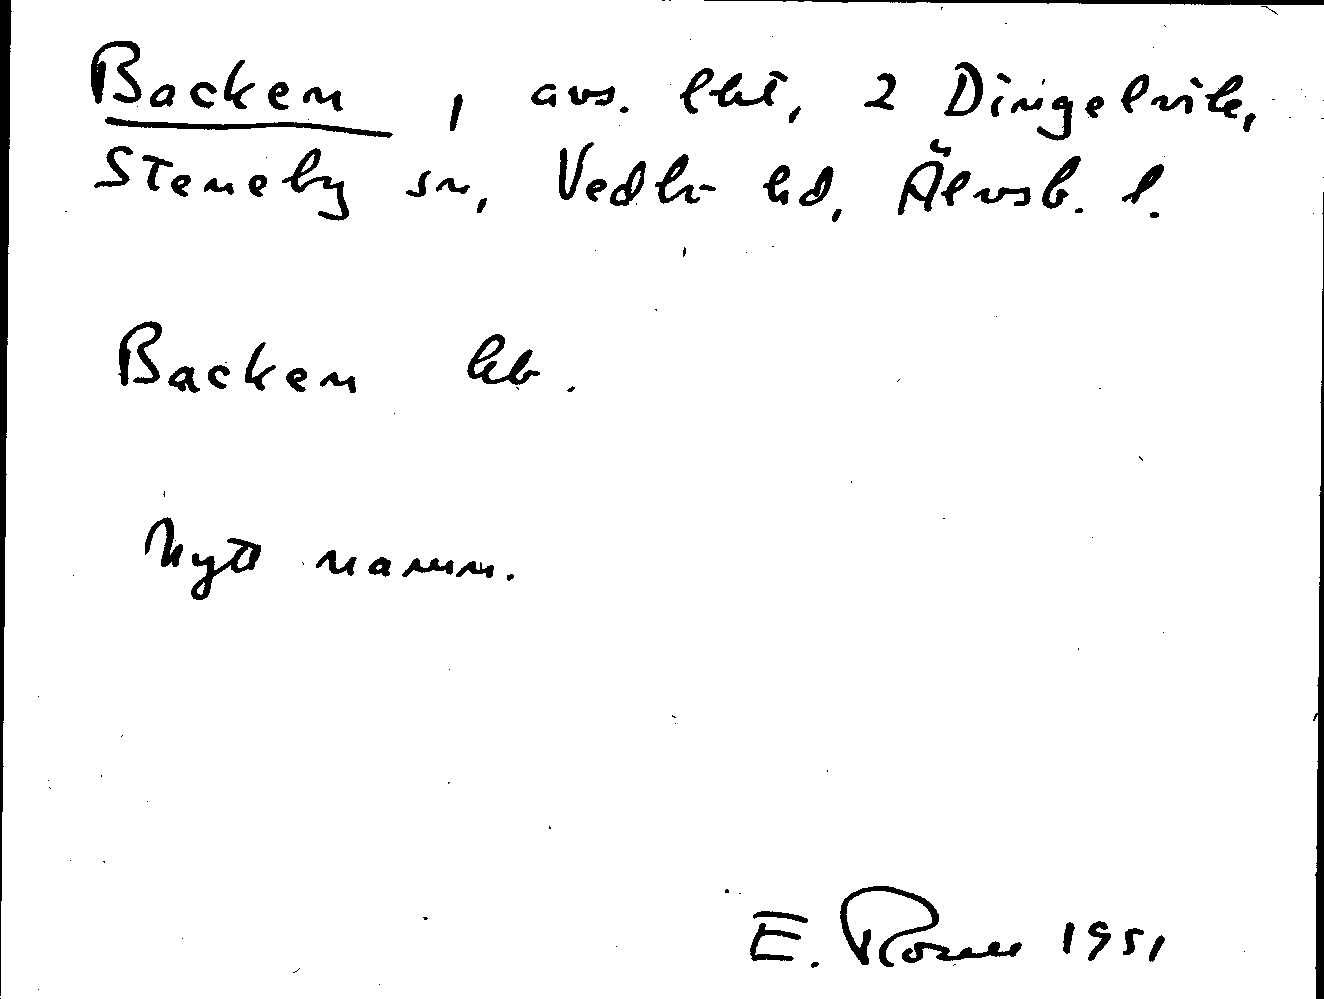 Backen, avs. lht, 2 Dingelvik,
Steneby sn, Vedbo hd, Älvsb. l.
Backen hb.
Nytt namn.
E. Rosell 1951